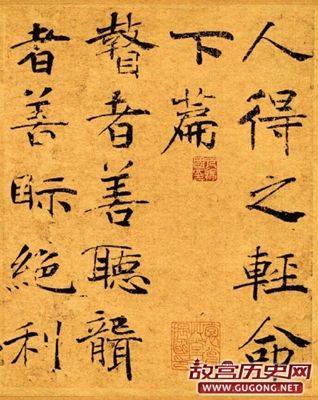 人得之輕命
下篇
瞽者善聽聾
者善眎絕利
故宫历史网
www.GUGONG.NET